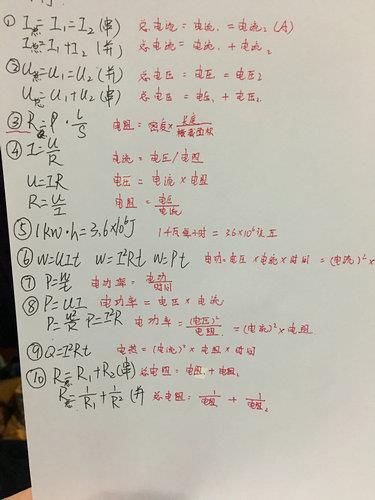 ① I总=I₁=I₂(串) 总电流=电流₁=电流₂(A)
I总=I₁+I₂(并) 总电流=电流₁+电流₂
②U总=U₁=U₂(并) 总电压=电压₁=电压₂
U总=U₁+U₂(串) 总电压=电压₁+电压₂
③ R=ρ·L/S 电阻=密度×长度/横截面积
④ I=U/R 电流=电压/电阻
U=IR 电压=电流×电阻
R=U/I 电阻=电压/电流
⑤ 1kw·h=3.6×10⁶J 1千瓦每小时=3.6×10⁶焦耳
⑥ W=UIt W=I²Rt W=Pt 电功=电压×电流×时间=(电流)²×
⑦ P=W/t 电功率=电功/时间
⑧ P=UI 电功率=电压×电流
P=U²/R P=I²R 电功率=(电压)²/电阻=(电流)²×电阻
⑨Q=I²Rt 电热=(电流)²×电阻×时间
⑩ R总=R₁+R₂(串) 总电阻=电阻₁+电阻₂
R总=1/R₁+1/R² (并) 总电阻=1/电阻₁+1/电阻₂